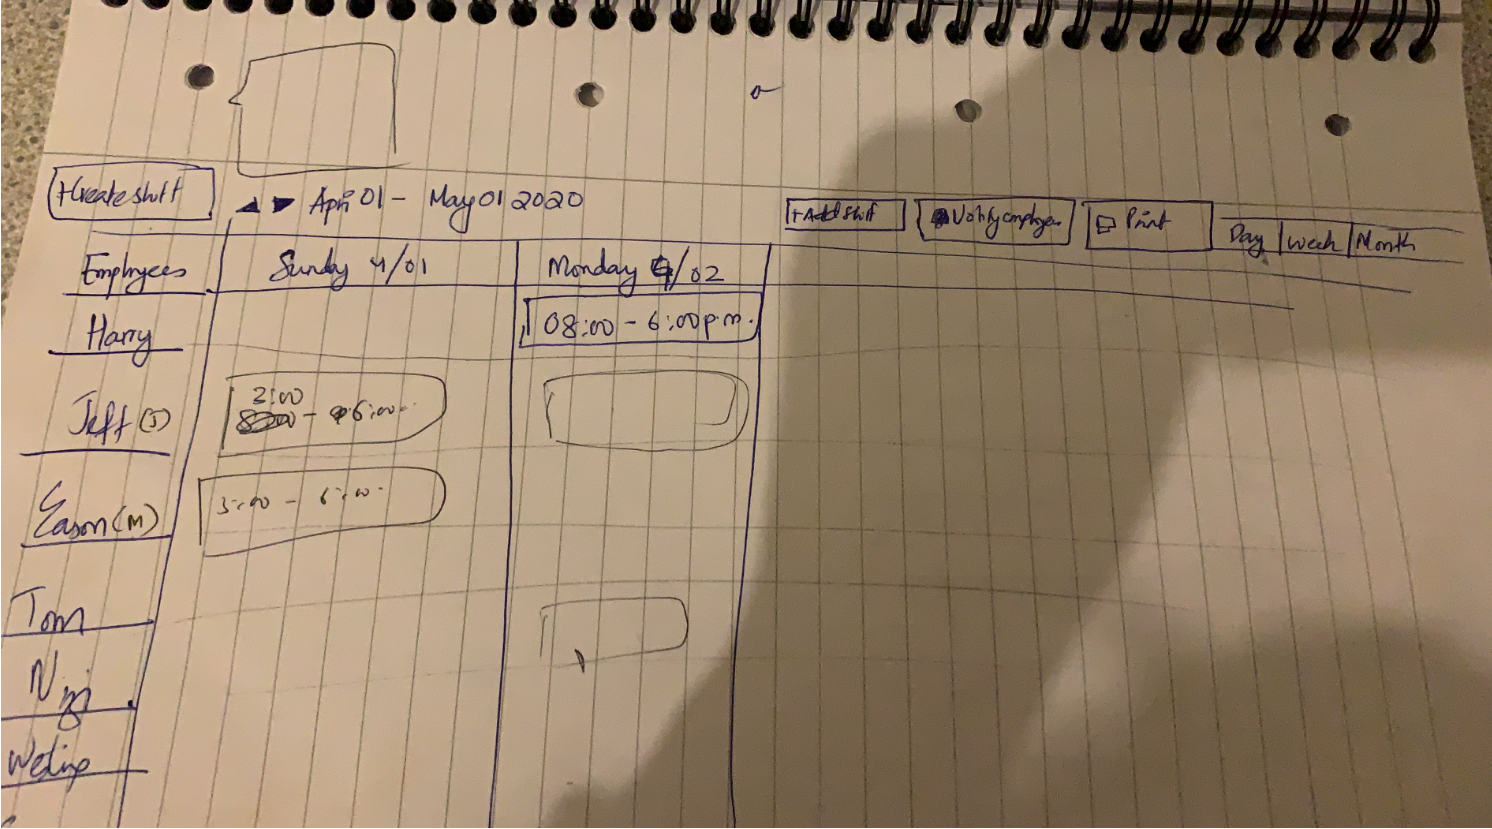 +Create shift
April 01 - May 01 2020
+Add shift
Notify employee
Print
Day
Week
Month
Employees
Sunday 4/01
Monday 4/02
Harry
08:00 - 6:00 p.m.
Jeff (J)
2:00 - 6:00
Eason (M)
3:00 - 6:00
Tom